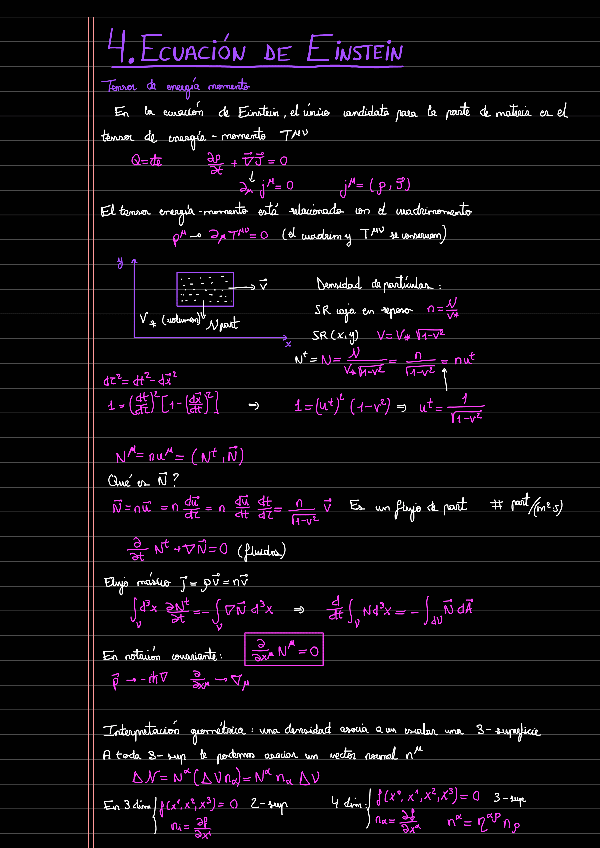 4. ECUACIÓN DE EINSTEIN
Tensor de energía momento
En la ecuación de Einstein, el único candidato para la parte de materia es el
tensor de energía-momento T^{μν}
Q=cte ∂ρ/∂t + ∇⃗J⃗ = 0
↓
∂_μ j^μ = 0 j^μ = (ρ, J⃗)
El tensor energía-momento está relacionado con el cuadrimomento
p^μ → ∂_μ T^{μν} = 0 (el cuadrim y T^{μν} se conservan)
y
V⃗
V_* (volumen) N part
x
Densidad de partículas:
SR caja en reposo n = N/V_*
SR (x,y) V = V_* √(1-v²)
N^t = N = N/(V_*√(1-v²)) = n/√(1-v²) = nu^t
dτ² = dt² - dx⃗²
1 = (dt/dτ)² [1 - (dx⃗/dt)²] → 1 = (u^t)² (1-v²) ⇒ u^t = 1/√(1-v²)
N^μ = nu^μ = (N^t, N⃗)
Qué es N⃗?
N⃗ = nu⃗ = n du⃗/dτ = n du⃗/dt dt/dτ = n/√(1-v²) v⃗ Es un flujo de part # part/(m²s)
∂/∂t N^t + ∇N⃗ = 0 (fluidos)
Flujo másico j⃗ = ρv⃗ = nv⃗
∫_V d³x ∂N^t/∂t = -∫_V ∇N⃗ d³x ⇒ d/dt ∫_V N d³x = -∫_{∂V} N⃗ dA⃗
En notación covariante: ∂/∂x^μ N^μ = 0
p⃗ → -iħ∇ ∂/∂x^μ → ∇_μ
Interpretación geométrica: una densidad asocia a un escalar una 3-superficie
A toda 3-sup le podemos asociar un vector normal n^μ
ΔN = N^α (ΔV n_α) = N^α n_α ΔV
En 3 dim { f(x¹, x², x³) = 0 2-sup 4 dim: { f(x⁰, x¹, x², x³) = 0 3-sup
n_i = ∂f/∂x^i n_α = ∂f/∂x^α n^α = η^{αβ} n_β